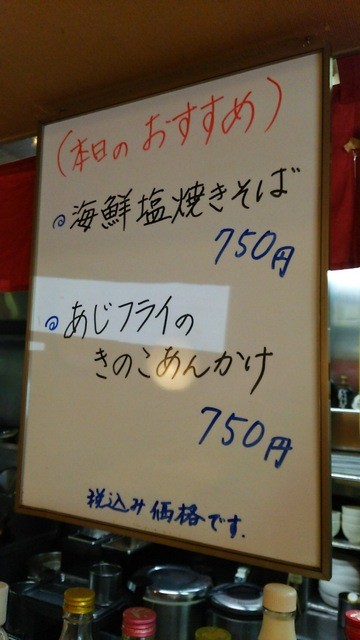 (本日のおすすめ)
海鮮塩焼きそば
750円
あじフライの
きのこあんかけ
750円
税込み価格です.